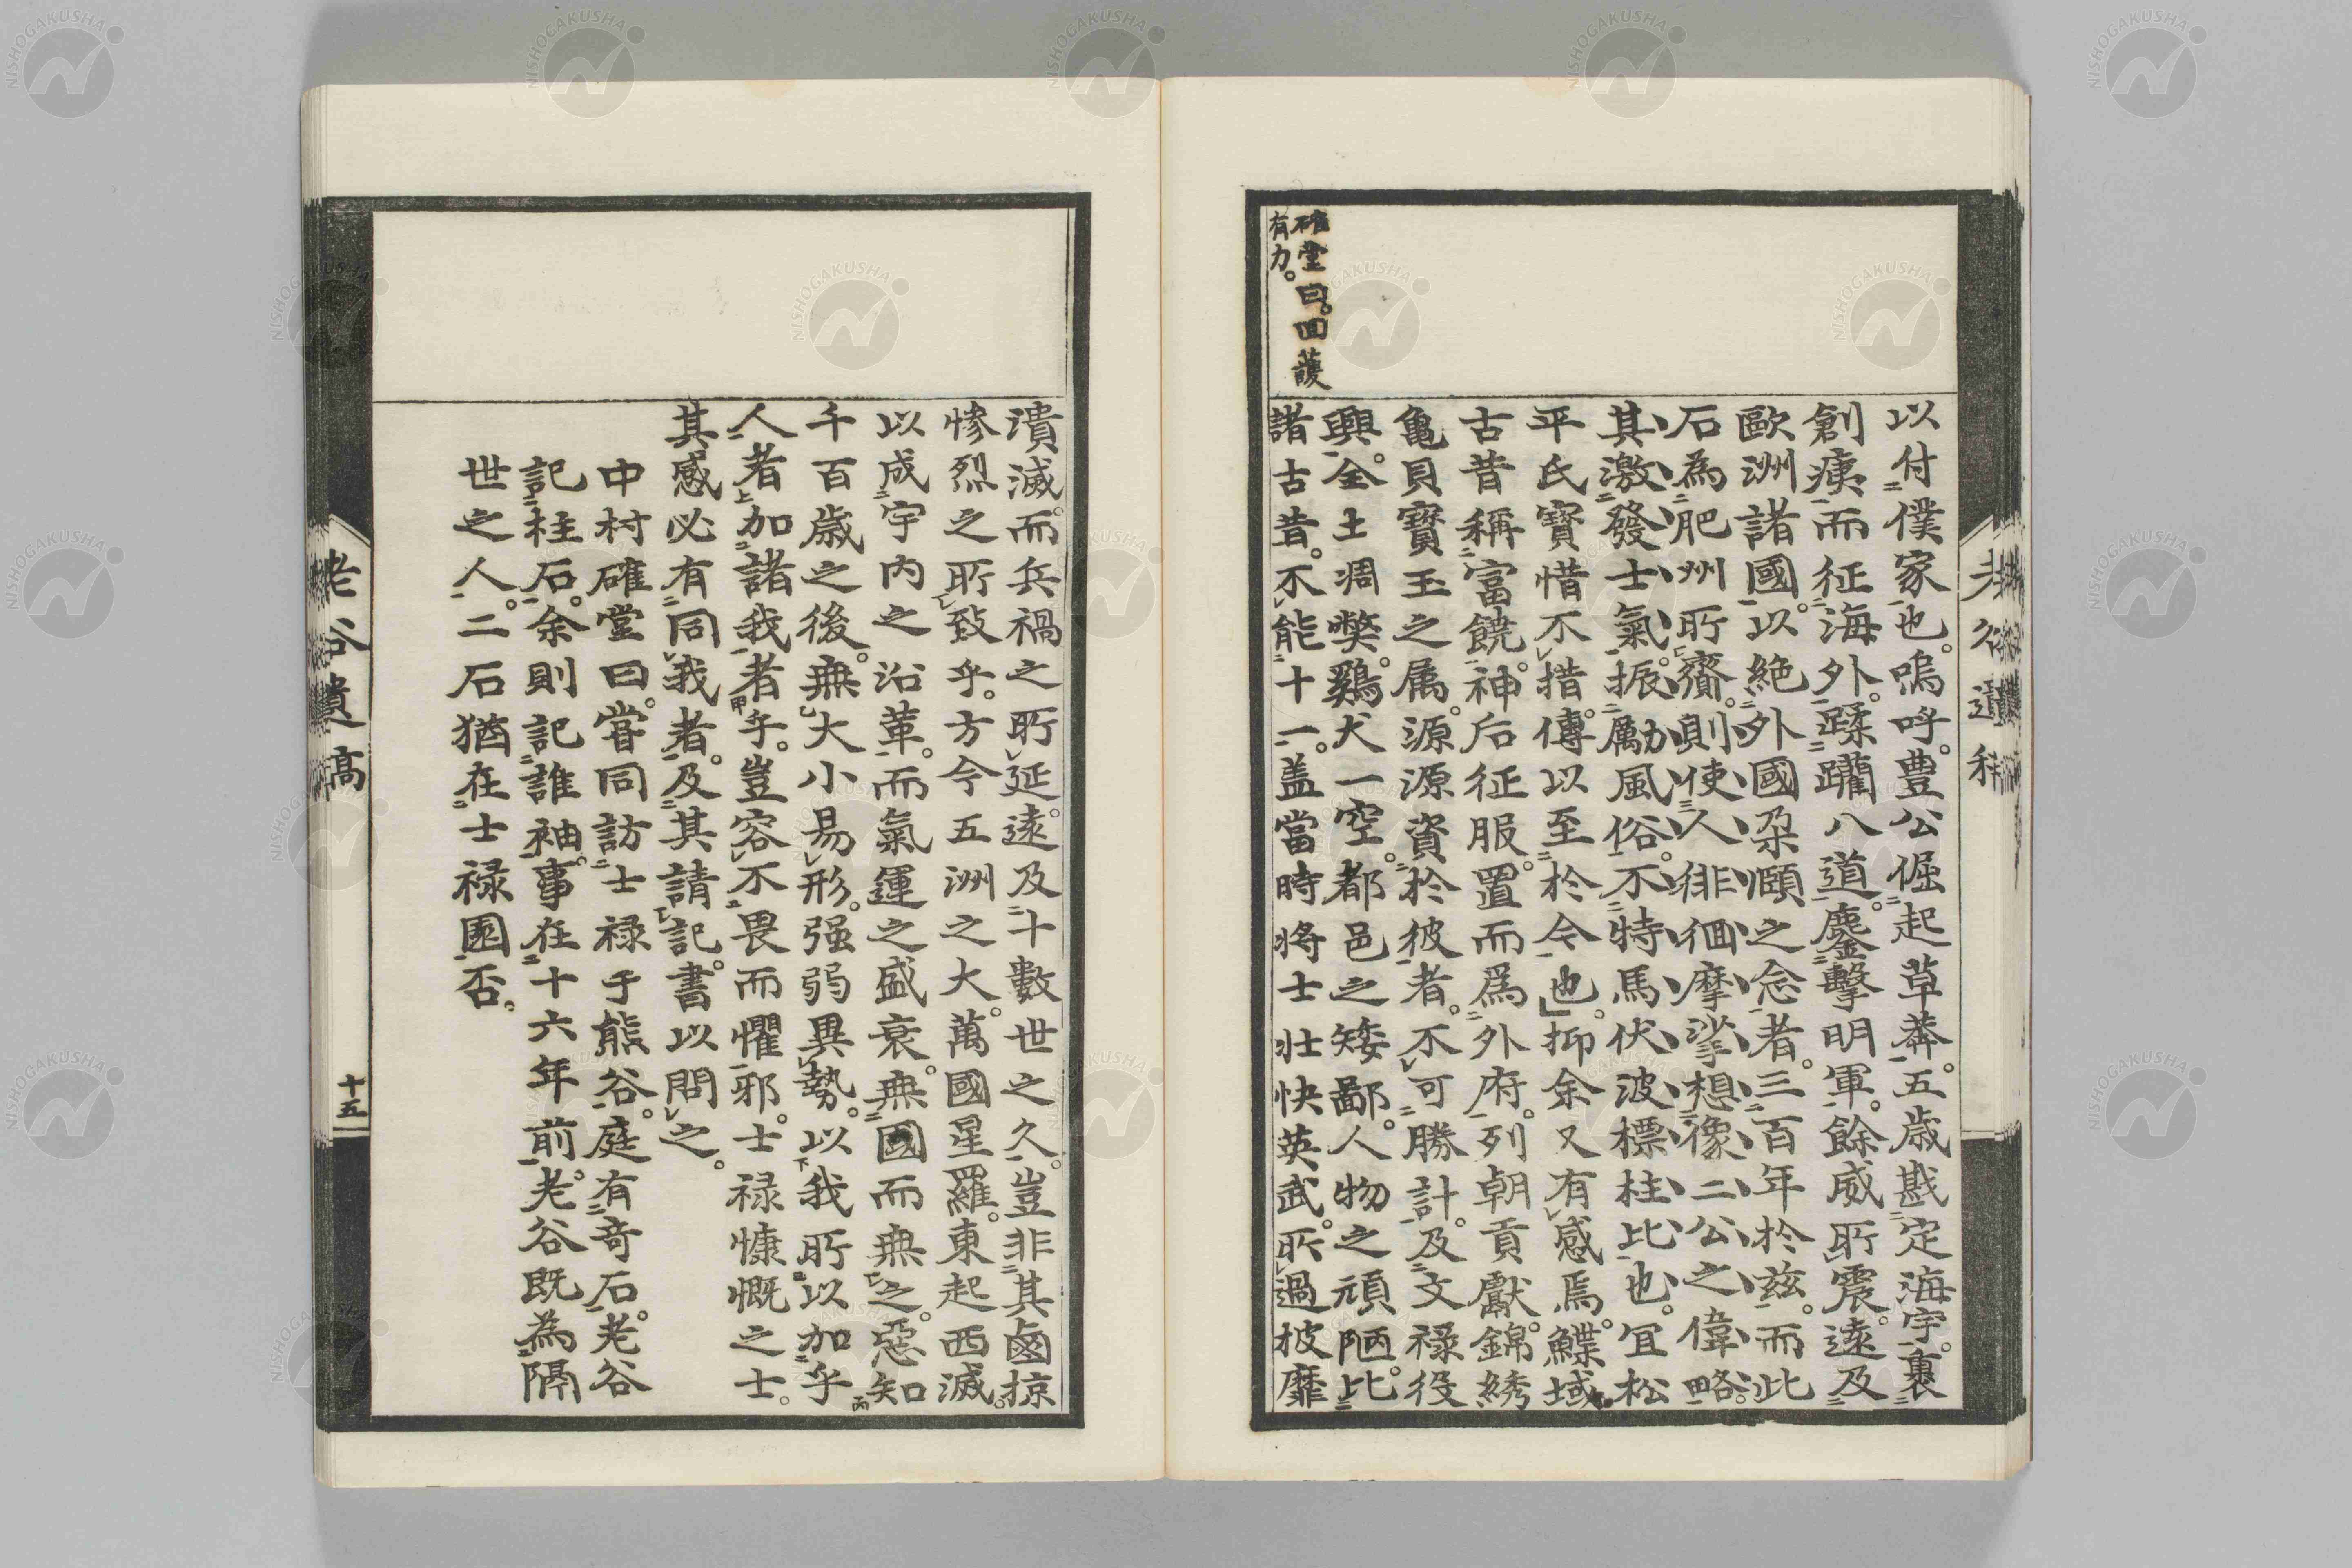 以付僕家也。嗚呼。豊公倔起草莽。五歳戡定海宇。裹
創痍而征海外。蹂躪八道。鏖擊明軍。餘威所震。遠及
歐洲諸國。以絶外國朶頤之念者。三百年於兹。而此
石為肥州所齎。則使人徘徊摩挲想像二公之偉略。
其激發士氣。振勵風俗。不特馬伏波標柱比也。冝松
平氏寶惜不措。傳以至於今也。」抑余又有感焉。鰈域
古昔稱富饒。神后征服。置而爲外府。列朝貢獻。錦綉
亀貝寶玉之属。源源資於彼者。不可勝計。及文禄役
興。全土凋弊。鷄犬一空。都邑之矮鄙。人物之頑陋。比
諸古昔。不能十一。盖當時将士壮快英武。所過披靡
確堂曰。回護
有力。
老谷遺稿
潰滅。而兵禍之所延。遠及十數世之久。豈非其鹵掠
惨烈之所致乎。方今五洲之大。萬國星羅。東起西滅。
以成宇内之沿革。而氣運之盛衰。無國而無之。惡知
千百歳之後。無大小易形。强弱異勢。以我所以加乎
人者加諸我者乎。豈容不畏而懼邪。士禄慷慨之士。
其感必有同我者。及其請記。書以問之。
中村確堂曰。嘗同訪士禄于熊谷。庭有奇石。老谷
記柱石。余則記誰袖。事在十六年前。老谷既為隔
世之人。二石猶在士禄園否。
老谷遺稿
十五
NISHOGAKUSHA